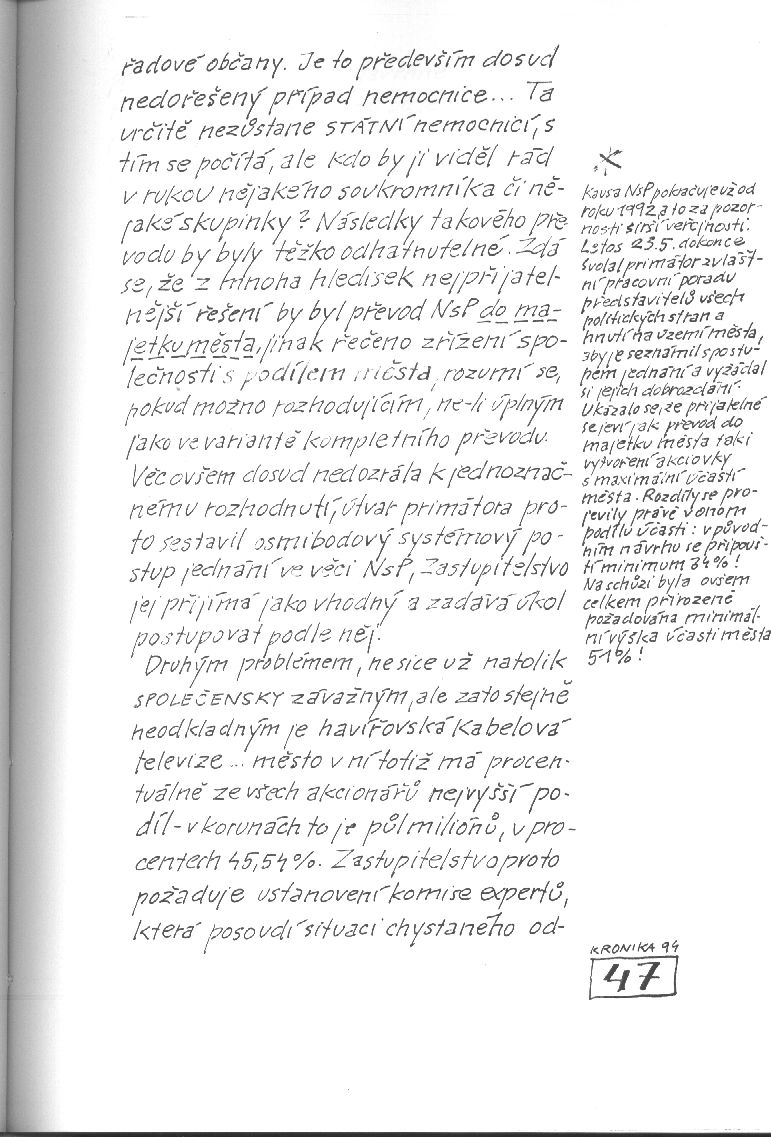 řadové občany. Je to především dosud
nedořešený případ nemocnice... Ta
určitě nezůstane STÁTNÍ nemocnicí, s
tím se počítá, ale kdo by ji viděl rád
v rukou nějakého soukromníka či ně-
jaké skupinky? Následky takového pře
vodu by byly těžko odhatnutelné. Zdá
se, že z mnoha hledisek nejpřijatel-
nější řešení by byl převod NsP do ma-
jetku města, jinak řečeno zřízení spo-
lečnosti s podílem města, rozumí se,
pokud možno rozhodujícím, ne-li úplným
jako ve variantě kompletního převodu.
Věc ovšem dosud nedozrála k jednoznač-
nému rozhodnutí, útvar primátora pro-
to sestavil osmibodový systémový po-
stup jednání ve věci NsP, Zastupitelstvo
jej přijímá jako vhodný a zadává úkol
postupovat podle něj.
Druhým problémem, ne sice už natolik
SPOLEČENSKY závažným, ale zato stejně
neodkladným je havířovská Kabelová
televize... město v ní totiž má procen-
tuálně ze všech akcionářů nejvyšší po-
díl - v korunách to je půl miliónů, v pro-
centech 45,54%. Zastupitelstvo proto
požaduje ustanovení komise expertů,
která posoudí situaci chystaného od-
*
Kausa NsP pokračuje už od
roku 1992 a to za pozor-
nosti širší veřejnosti.
Letos 23.5. dokonce
svolal primátor zvlášt-
ní pracovní poradu
představitelů všech
politických stran a
hnutí na území města,
aby je seznámil s postu-
pem jednání a vyžádal
si jejich dobrozdání.
Ukázalo se, že přijatelné
se jeví jak převod do
majetku města tak i
vytvoření akciovky
s maximální účastí
města. Rozdíly se pro-
jevily právě v onom
podílu účasti: v původ-
ním návrhu se připouš-
tí minimum 34%!
Na schůzi byla ovšem
celkem přirozeně
požadována minimál-
ní výška účasti města
51%!
KRONIKA 94
47